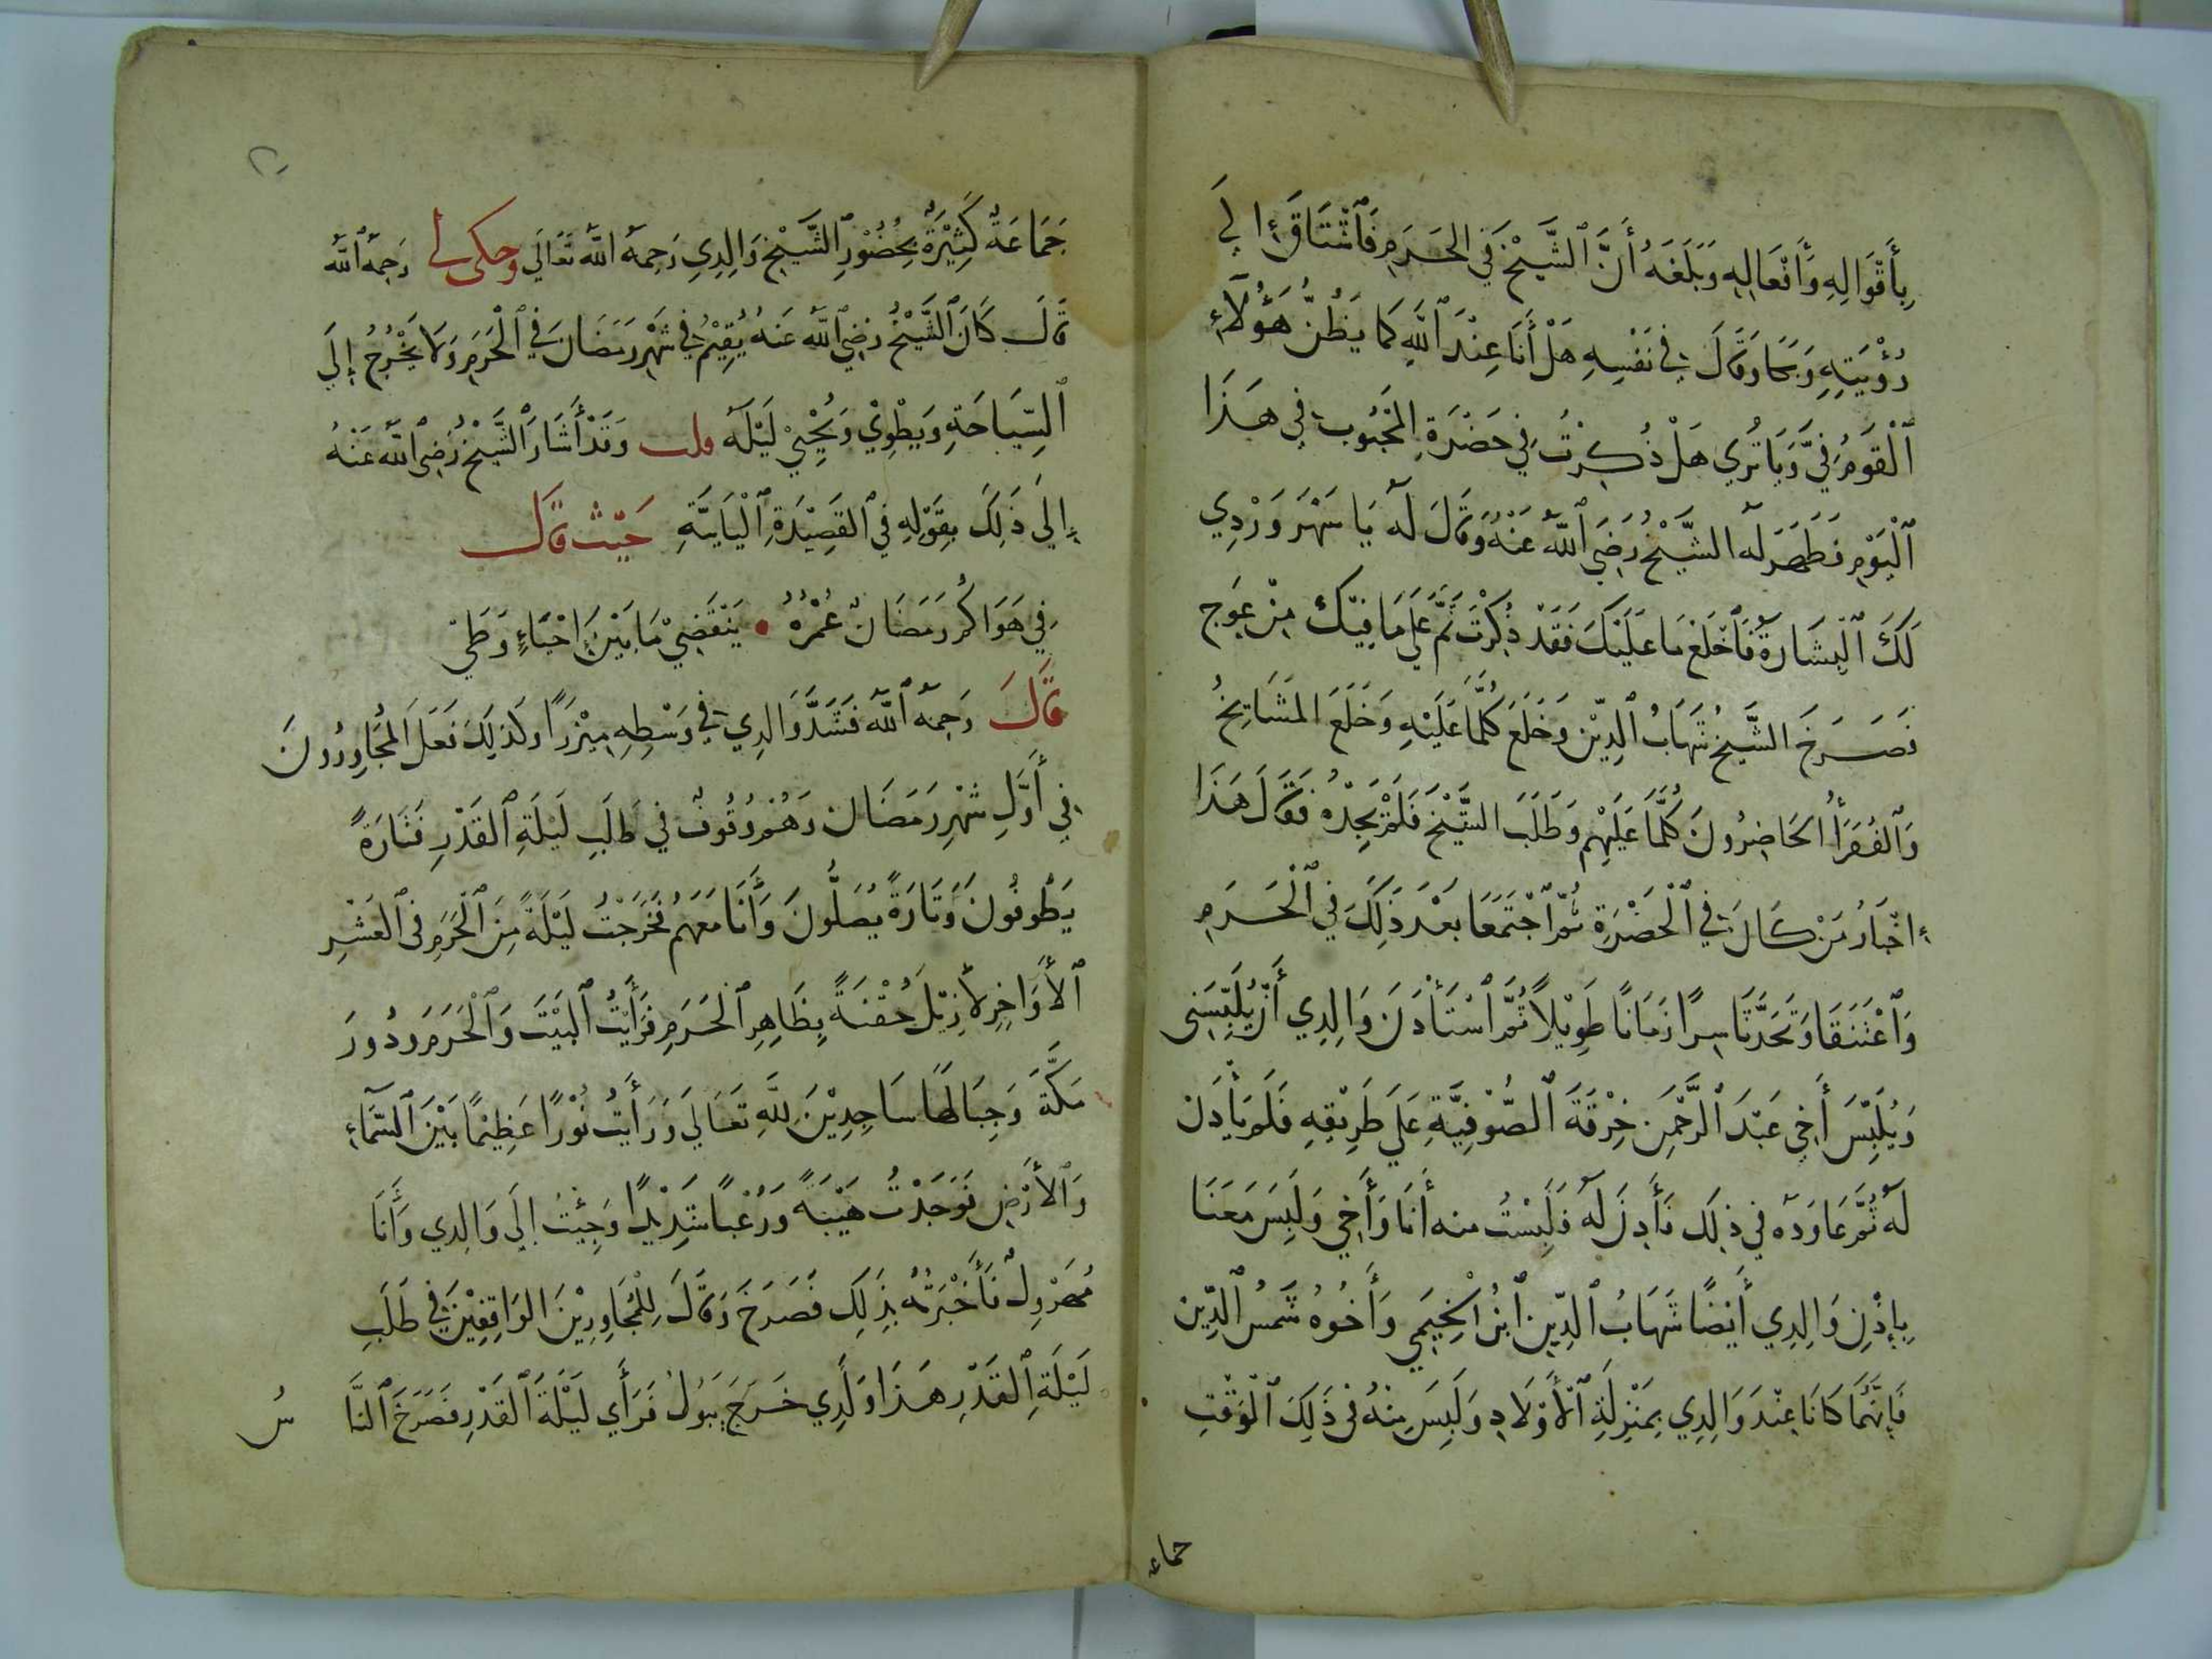 بِأَقْوَالِهِ وَأَفْعَالِهِ وَبَلَغَهُ أَنَّ ٱلشَّيْخَ فِي الحَرَمِ فَٱشْتَاقَ إِلَي
رُؤْيَتِهِ وَبَكَا وَقَالَ فِي نَفْسِهِ هَلْ أَنَا عِنْدَ ٱللَّهِ كَمَا يَظُنُّ هَؤُلَآءِ
ٱلْقَوْمُ فِيَّ وَيَا تُرَي هَلْ ذُكِرْتُ فِي حَضْرَةِ المَحْبُوبِ فِي هَذَا
ٱلْيَوْمِ فَظَهَرَ لَهُ الشَّيْخُ رَضِيَ ٱللَّهُ عَنْهُ وَقَالَ لَهُ يَا سَهْرَوَرْدِي
لَكَ ٱلْبِشَارَةُ فَٱخْلَعْ مَا عَلَيْكَ فَقَدْ ذُكِرْتَ ثَمَّ عَلَي مَا فِيْكَ مِنْ عِوَجِ
فَصَرَخَ الشَّيْخُ شِهَابُ ٱلدِّيْنِ وَخَلَعَ كُلَّمَا عَلَيْهِ وَخَلَعَ المَشَايِخُ
وَٱلفُقَرَأُ الحَاضِرُونَ كُلَّمَا عَلَيْهِمْ وَطَلَبَ الشَّيْخَ فَلَمْ يَجِدْهُ فَقَالَ هَذَا
إِخْبَارُ مَنْ كَانَ فِي ٱلْحَضْرَةِ ثُمَّ ٱجْتَمَعَا بَعْدَ ذَلِكَ فِي ٱلْحَرَمِ
وَٱعْتَنَقَا وَتَحَدَّثَا سِرًا زَمَانًا طَوِيْلًا ثُمَّ ٱسْتَأْذَنَ وَالِدِي أَنْ يُلْبِسَنِي
وَيُلْبِسَ أَخِي عَبْدَ ٱلرَّحْمَنِ خِرْقَةَ ٱلصُّوْفِيَّةِ عَلَي طَرِيْقِهِ فَلَمْ يَأْذَن
لَهُ ثُمَّ عَاوَدَهُ فِي ذَلِكَ فَأَذِنَ لَهُ فَلَبِسْتُ منه أَنَا وَأَخِي وَلَبِسَ مَعَنَا
بِإِذْنِ وَالِدِي أَيْضًا شَهَابُ ٱلدِّيْنِ ٱبْنُ الخِيَمِي وَأَخُوهُ شَمْسُ ٱلدِّيْن
فَإِنَّهُمَا كَانَا عِنْدَ وَالِدِي بِمَنْزِلَةِ ٱلأَوْلَادِ وَلَبِسَ مِنْهُ فِي ذَلِكَ ٱلْوَقْتِ
جماعه
٢٠
جَمَاعَةٌ كَثِيْرَةٌ بِحُضُوْرِ ٱلشَّيْخِ وَالِدِي رَحِمَهُ اللَّهُ تَعَالَي وحكى لي رَحِمَهُ ٱللَّهُ
قَالَ كَانَ ٱلشَّيْخُ رَضِيَ ٱللَّهُ عَنهُ يُقِيْمُ فِي شَهْرِ رَمَضَانَ فِي ٱلْحَرَمِ وَلَا يَخْرُجُ إِلَي
ٱلسِّيَاحَةِ وَيَطْوِيْ وَيُحْيِيْ لَيْلَهُ قلت وَقَدْ أَشَارَ ٱلشَّيْخُ رَضِيَ ٱللَّهُ عَنْهُ
إِلَي ذَلِكَ بِقَوْلِهِ فِي ٱلقَصِيْدَةِ ٱلْيَايِيَّةِ حَيْثُ قَالَ
فِي هَوَاكُمْ رَمَضَانٌ عُمْرُهُ • يَنْقَضِيْ مَا بَيْنَ إِحْيَاءٍ وَطَيْ
قَالَ رَحِمَهُ ٱللَّهُ فَشَدَّ وَالدِي فِي وَسْطِهِ مِيْزَرًا وَكَذَلِكَ فَعَلَ المُجَاوِرُونَ
فِي أَوَّلِ شَهْرِ رَمَضَان وَهُمْ وُقُوفٌ فِي طَلَبِ لَيْلَةِ ٱلقَدْرِ فَتَارَةً
يَطُوفُونَ وَتَارَةً يُصَلُّونَ وَأَنَا مَعَهُمْ فَخَرَجْتُ لَيْلَةً مِنَ ٱلْحَرَمِ فِي ٱلعَشْرِ
ٱلأَوَاخِرِ لأُزِيْلَ حُقْنَةً بِظَاهِرِ ٱلْحَرَمِ فَرَأَيْتُ ٱلْبَيْتَ وَٱلْحَرَمَ وَدُورَ
مَكَّةَ وَجِبَالَهَا سَاجِدِيْنَ لِلَّهِ تَعَالَي وَرَأَيْتُ نُوْرًا عَظِيْمًا بَيْنَ ٱلسَّمَآءِ
وَٱلأَرْضِ فَوَجَدْتُ هَيْبَةً وَرُعْبًا شَدِيْدًا وَجِئْتُ إِلَي وَالِدِي وَأَنَا
مُهَرْوِلٌ فَأَخْبَرْتُهُ بِذَلِكَ فَصَرَخَ وَقَالَ لِلْمُجَاوِرِيْنَ الوَاقِفِيْنَ فِي طَلَبِ
لَيْلَةِ ٱلقَدْرِ هَذَا وَلَدِي خَرَجَ يَبُولُ فَرَأَي لَيْلَةَ ٱلْقَدْرِ فَصَرَخَ ٱلنَّا سُ